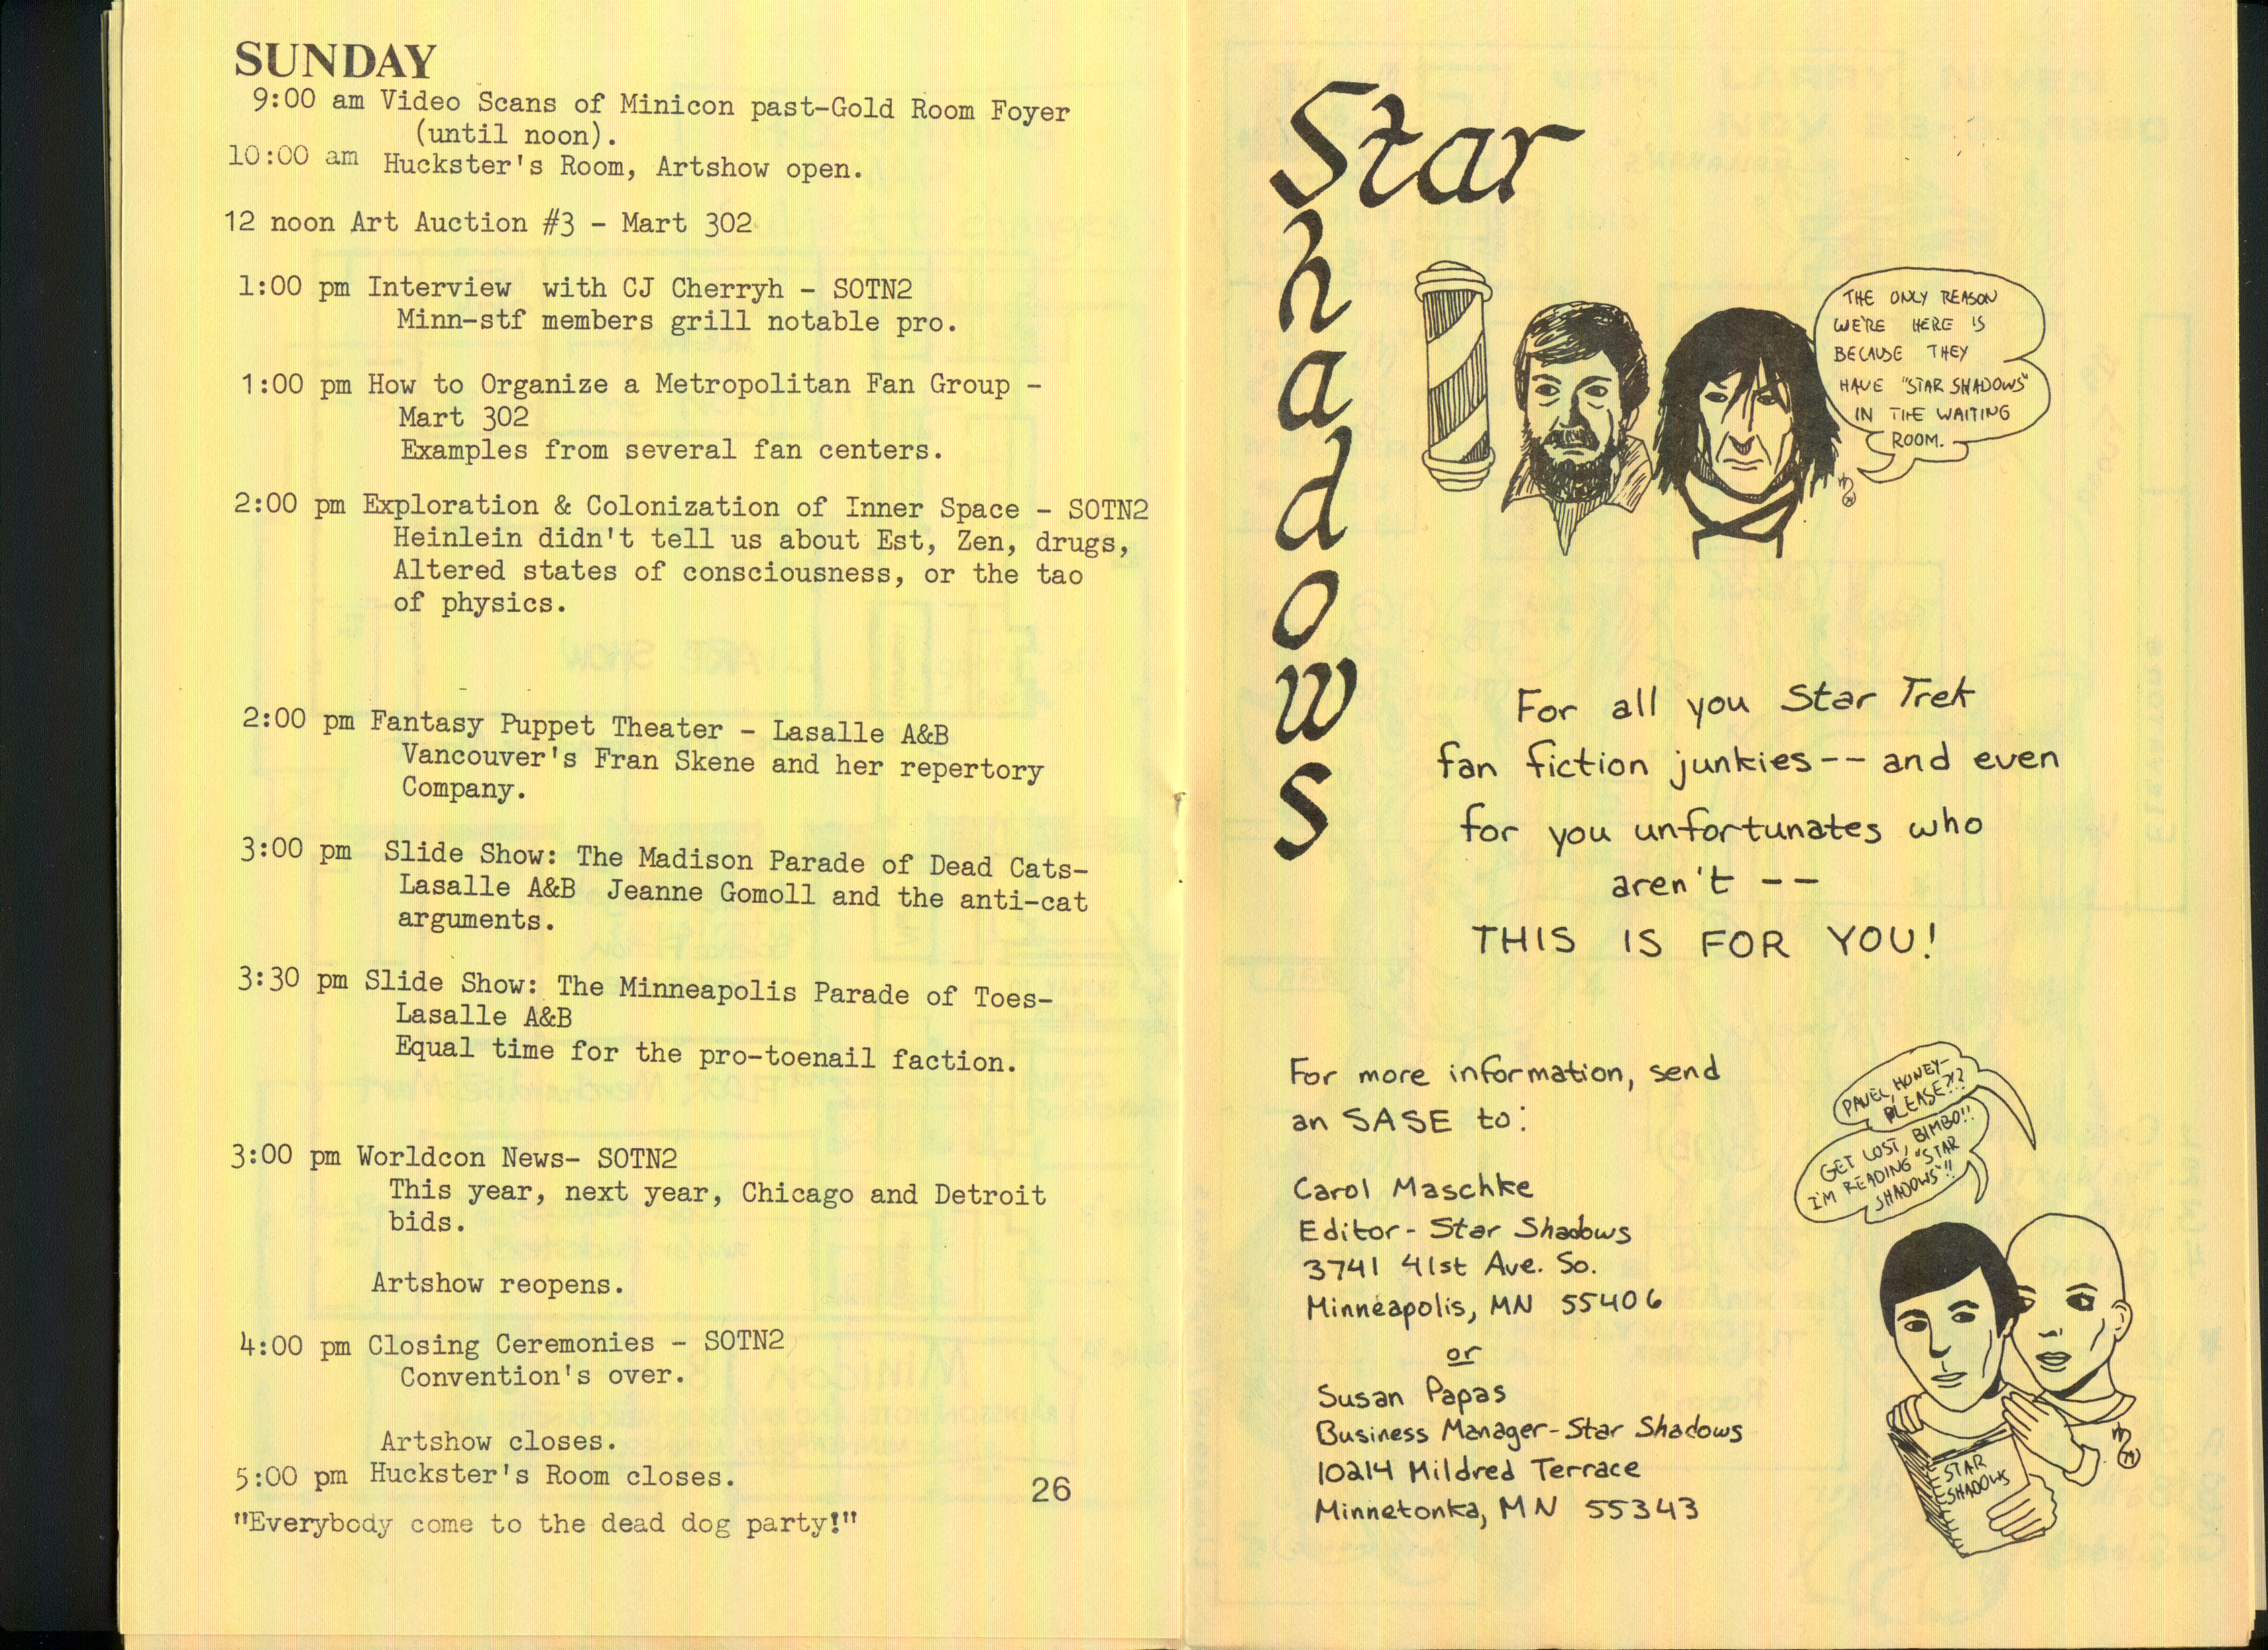 SUNDAY
9:00 am Video Scans of Minicon past-Gold Room Foyer
(until noon).
10:00 am Huckster's Room, Artshow open.
12 noon Art Auction #3 - Mart 302
1:00 pm Interview with CJ Cherryh - SOTN2
Minn-stf members grill notable pro.
1:00 pm How to Organize a Metropolitan Fan Group -
Mart 302
Examples from several fan centers.
2:00 pm Exploration & Colonization of Inner Space - SOTN2
Heinlein didn't tell us about Est, Zen, drugs,
Altered states of consciousness, or the tao
of physics.
2:00 pm Fantasy Puppet Theater - Lasalle A&B
Vancouver's Fran Skene and her repertory
Company.
3:00 pm Slide Show: The Madison Parade of Dead Cats-
Lasalle A&B Jeanne Gomoll and the anti-cat
arguments.
3:30 pm Slide Show: The Minneapolis Parade of Toes-
Lasalle A&B
Equal time for the pro-toenail faction.
3:00 pm Worldcon News- SOTN2
This year, next year, Chicago and Detroit
bids.
Artshow reopens.
4:00 pm Closing Ceremonies - SOTN2
Convention's over.
Artshow closes.
5:00 pm Huckster's Room closes.
26
"Everybody come to the dead dog party!"
Star
Shadows
THE ONLY REASON
WE'RE HERE IS
BECAUSE THEY
HAVE "STAR SHADOWS"
IN THE WAITING
ROOM.
For all you Star Trek
fan fiction junkies -- and even
for you unfortunates who
aren't --
THIS IS FOR YOU!
For more information, send
an SASE to:
Carol Maschke
Editor - Star Shadows
3741 41st Ave. So.
Minneapolis, MN 55406
or
Susan Papas
Business Manager - Star Shadows
10214 Mildred Terrace
Minnetonka, MN 55343
PAVEL, HONEY-
PLEASE?!?
GET LOST, BIMBO!!
I'M READING "STAR
SHADOWS"!!
STAR
SHADOWS